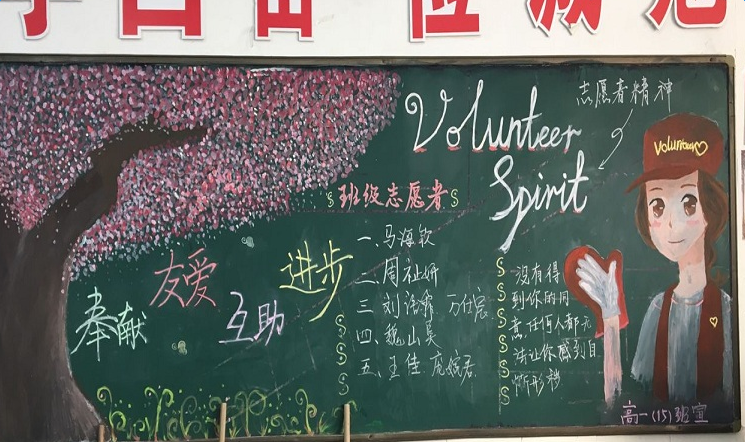 Volunteer
Spirit
志愿者精神
Volunteer
班级志愿者
一、马海钦
二、周祉妍
三 刘洺
四、魏山昊
五、王佳 庞婉君
奉献
友爱
互助
进步
没有得
到你的同
意,任何人都无
法让你感到自
惭形秽
高一(15)班宣